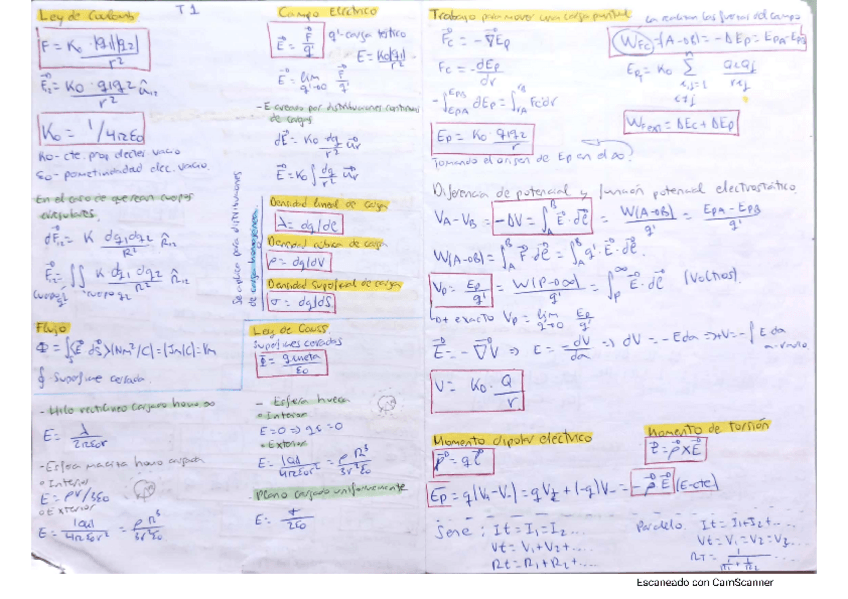 Ley de Coulomb
T1
F = K₀ · |q₁||q₂| / r²
F₁₂ = K₀ · q₁q₂ / r² û₁₂
K₀ = 1/4πε₀
K₀ - cte. prop. elec. vacío
ε₀ - permitividad elec. vacío.
En el caso de que sean cuerpos
dF₁₂ = K dq₁dq₂ / R² R̂₁₂
F₁₂ = ∬ K dq₁dq₂ / R² R̂₁₂
Flujo
Φ = ∫(E dS) (Nm²/C) = (Jm/C) = Vm
∮ Superficie cerrada.
- Hilo rectilíneo cargado homo ∞
E = λ / 2πε₀r
- Esfera maciza homo cargada
• Interior
E = ρr/3ε₀
• Exterior
E = |q| / 4πε₀r² = ρR³ / 3r²ε₀
Campo Eléctrico
E = F / q' q' - carga testigo
E = K₀|q| / r²
E = lim q'→0 F / q'
- E creado por distribuciones continuas
de cargas
dE = K₀ dq / r² ûr
E = K₀ ∫ dq / r² ûr
Se aplica para distribuciones
de cargas homogéneas
Densidad lineal de carga
λ = dq/dl
Densidad cúbica de carga
ρ = dq/dV
Densidad superficial de carga
σ = dq/dS
Ley de Gauss
Superficies cerradas
Φ = q neta / ε₀
- Esfera hueca
• Interior
E = 0 ⇒ q = 0
• Exterior
E = |q| / 4πε₀r² = ρR³ / 3r²ε₀
- Plano cargado uniformemente
E = σ / 2ε₀
Trabajo para mover una carga puntual
La realizan las fuerzas del campo
Fc = -∇Ep
W_FC = (A→B) = -ΔEp = EpA - EpB
Fc = -dEp / dr
Ep = K₀ Σ i,j=1 i≠j qiqj / rij
-∫ dEp = ∫ Fc dr
Ep = K₀ · q₁q₂ / r
W ext = ΔEc + ΔEp
Tomando el origen de Ep en el ∞.
Diferencia de potencial y función potencial electrostático
VA - VB = -ΔV = ∫ E · dl = W(A→B) / q' = EpA - EpB / q'
W(A→B) = ∫ F · dl = ∫ q' · E · dl.
Vp = Ep / q' = W(P→∞) / q' = ∫ E · dl (Voltios).
exacto Vp = lim q'→0 Ep / q'
E = -∇V ⇒ E = -dV / da ⇒ dV = -E da ⇒ V = -∫ E da
V = K₀ · Q / r
Momento dipolar eléctrico
p = q l
Momento de torsión
τ = p × E
Ep = q(V₊ - V₋) = qV₊ + (-q)V₋ = -p E (E - cte)
Serie: It = I₁ = I₂ ....
Vt = V₁ + V₂ + ....
Rt = R₁ + R₂ + ....
Paralelo. It = I₁ + I₂ + ....
Vt = V₁ = V₂ = V₃ ....
RT = 1 / 1/R₁ + 1/R₂ ....
Escaneado con CamScanner